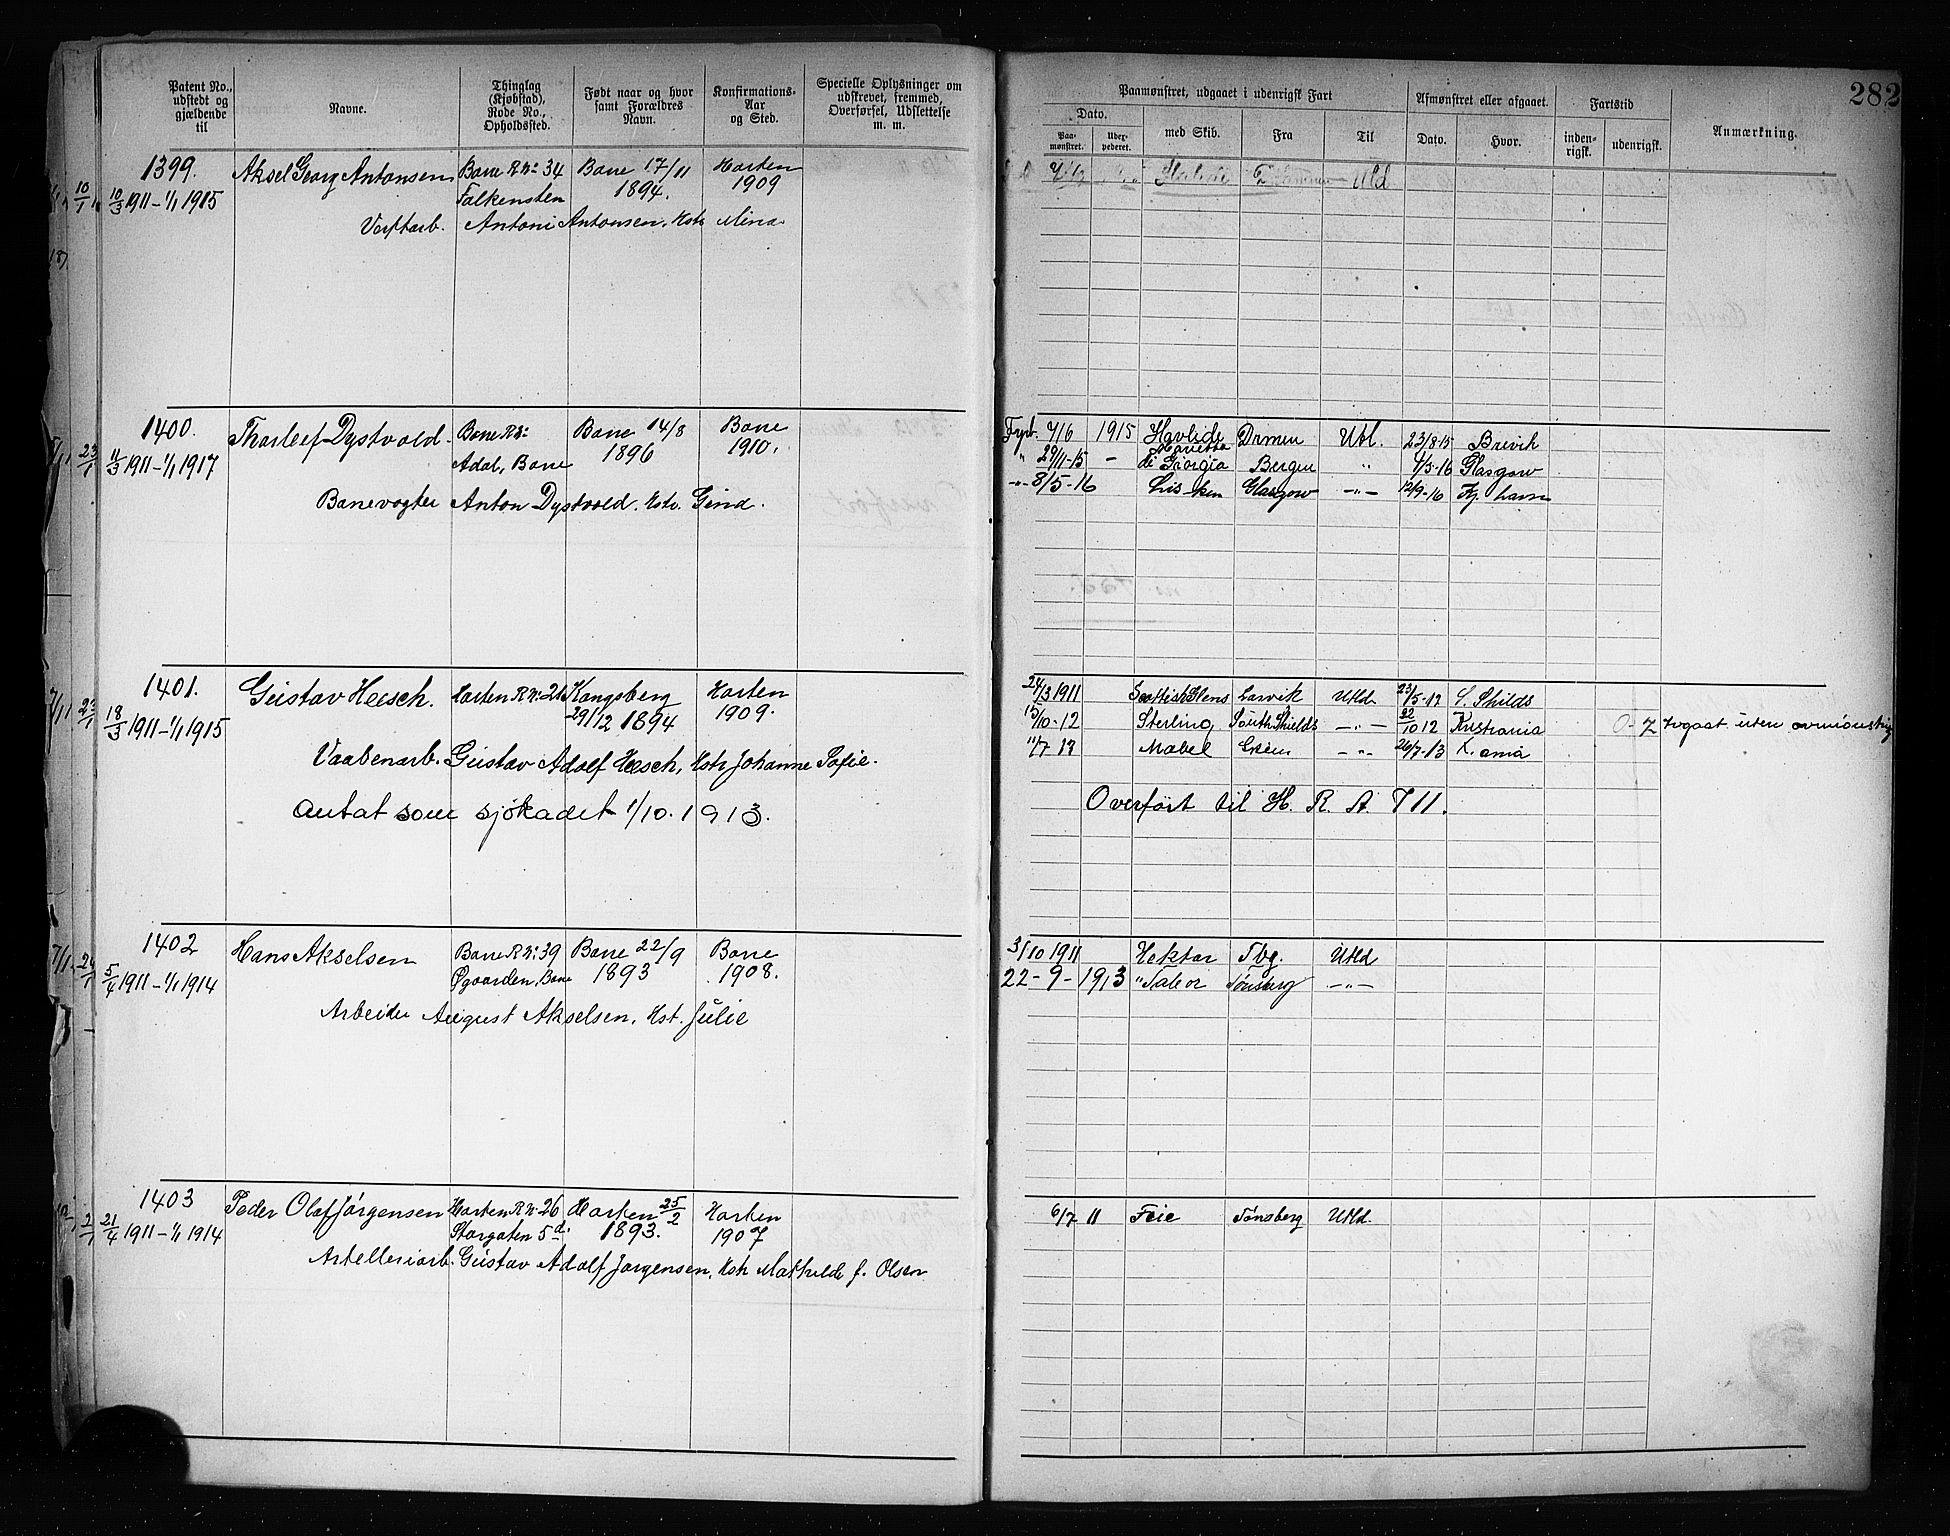 282
Patent No., udstedt og gjældende til
Navne.
Thinglag (Kjøbstad), Rode No., Opholdssted.
Født naar og hvor samt Forældres Navn.
Konfirmations-Aar og Sted.
Specielle Oplysninger om udskrevet, fremmed, Overførsel, Udslettelse m. m.
Paamønstret, udgaaet i udenrigsk Fart
Dato.
Paa-mønstret.
med Skib.
Fra
Til
Afmønstret eller afgaaet.
Dato.
Hvor.
Fartstid
inden-rigsk.
udenrigsk.
Anmærkning.
1399. Aksel Georg Antonsen Borre R.Nº 34 Borre 17/11 Horten
10/3 1911 – 1/1 1915 Falkensten 1894. 1909
Verftarb. Antoni Antonsen, Hstr Mina
Utld
1400. Thorleif Dystvold Borre R.Nº Borre 14/8 Borre
11/3 1911 – 1/1 1917 Adal, Borre 1896 1910.
Banevogter Anton Dystvold. Hstr. Gina.
7/6 1915 Havlide Drmen Utl. 23/8-15 Brevik
29/11-15 – di Giorgia Bergen " 4/5-16 Glasgow
-"- 8/5-16 Glasgow -"- 12/9-16 Kj. havn
1401. Gustav Heesch. Horten R.Nº 21 Kongsberg Horten
18/3 1911 – 1/1 1915 29/12 1894 1909.
Vaabenarb. Gustav Adolf Heesch, Hstr Johanne Sofie.
antat som sjökadet 1/10. 1913.
24/3 1911 Scottish Glens Larvik Utld 23/5-12 S. Shilds
15/10-12 Sterling South Shields -"- 22/10 12 Kristiania
11/7 13 Mabel -"- 26/7-13 X.ania
Overført til H. R. A. 711.
1402 Hans Akselsen Borre R.Nº 39 Borre 22/9 Borre
5/4 1911 – 1/1 1914 Øgaarden, Borre 1893 1908.
Arbeider August Akselsen, Hst. Julie
31/10 1911 Hektor Tbg. Utld
22-9-1913 "Tabor Tönsberg -"-
1403 Peder Olaf Jørgensen Horten R.Nº 26 Horten 25/2 Horten
21/4 1911 – 1/1 1914 Storgaten 5 d. 1893. 1907
Artelleriarb. Gustav Adolf Jørgensen, Hstr Mathilde f. Olsen
6/7 11 Feie Tønsberg Utld.